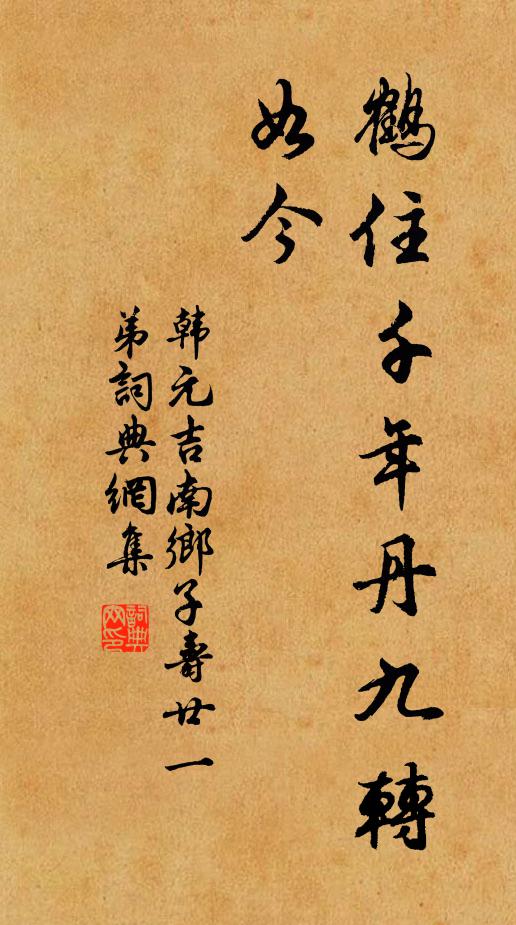 鶴住千年丹九轉
如今
韩元吉南鄉子壽廿一
弟詞典網集
詞典
网印